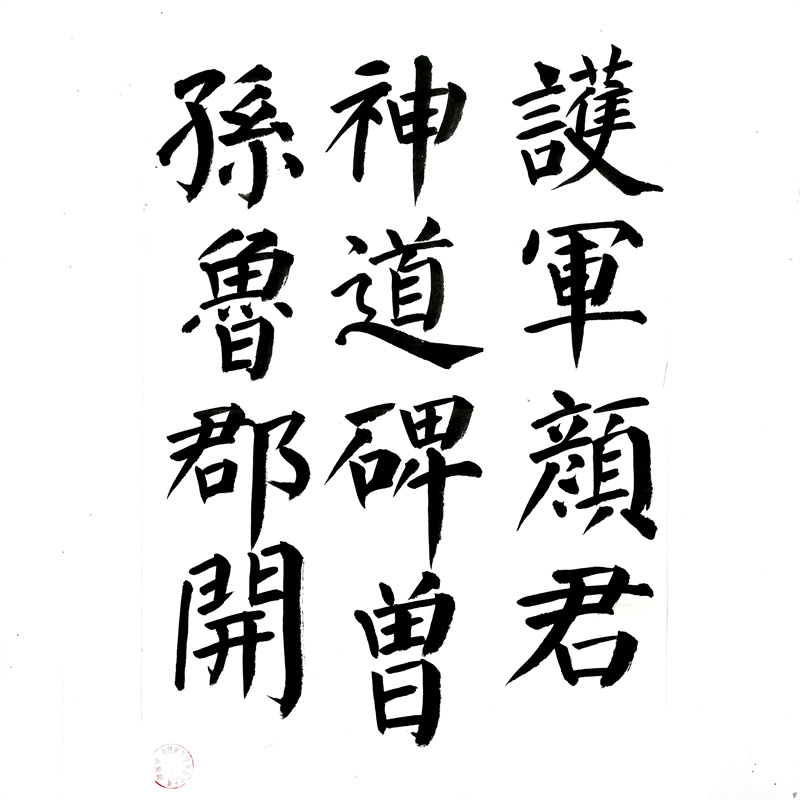 護軍顏君
神道碑曾
孫魯郡開